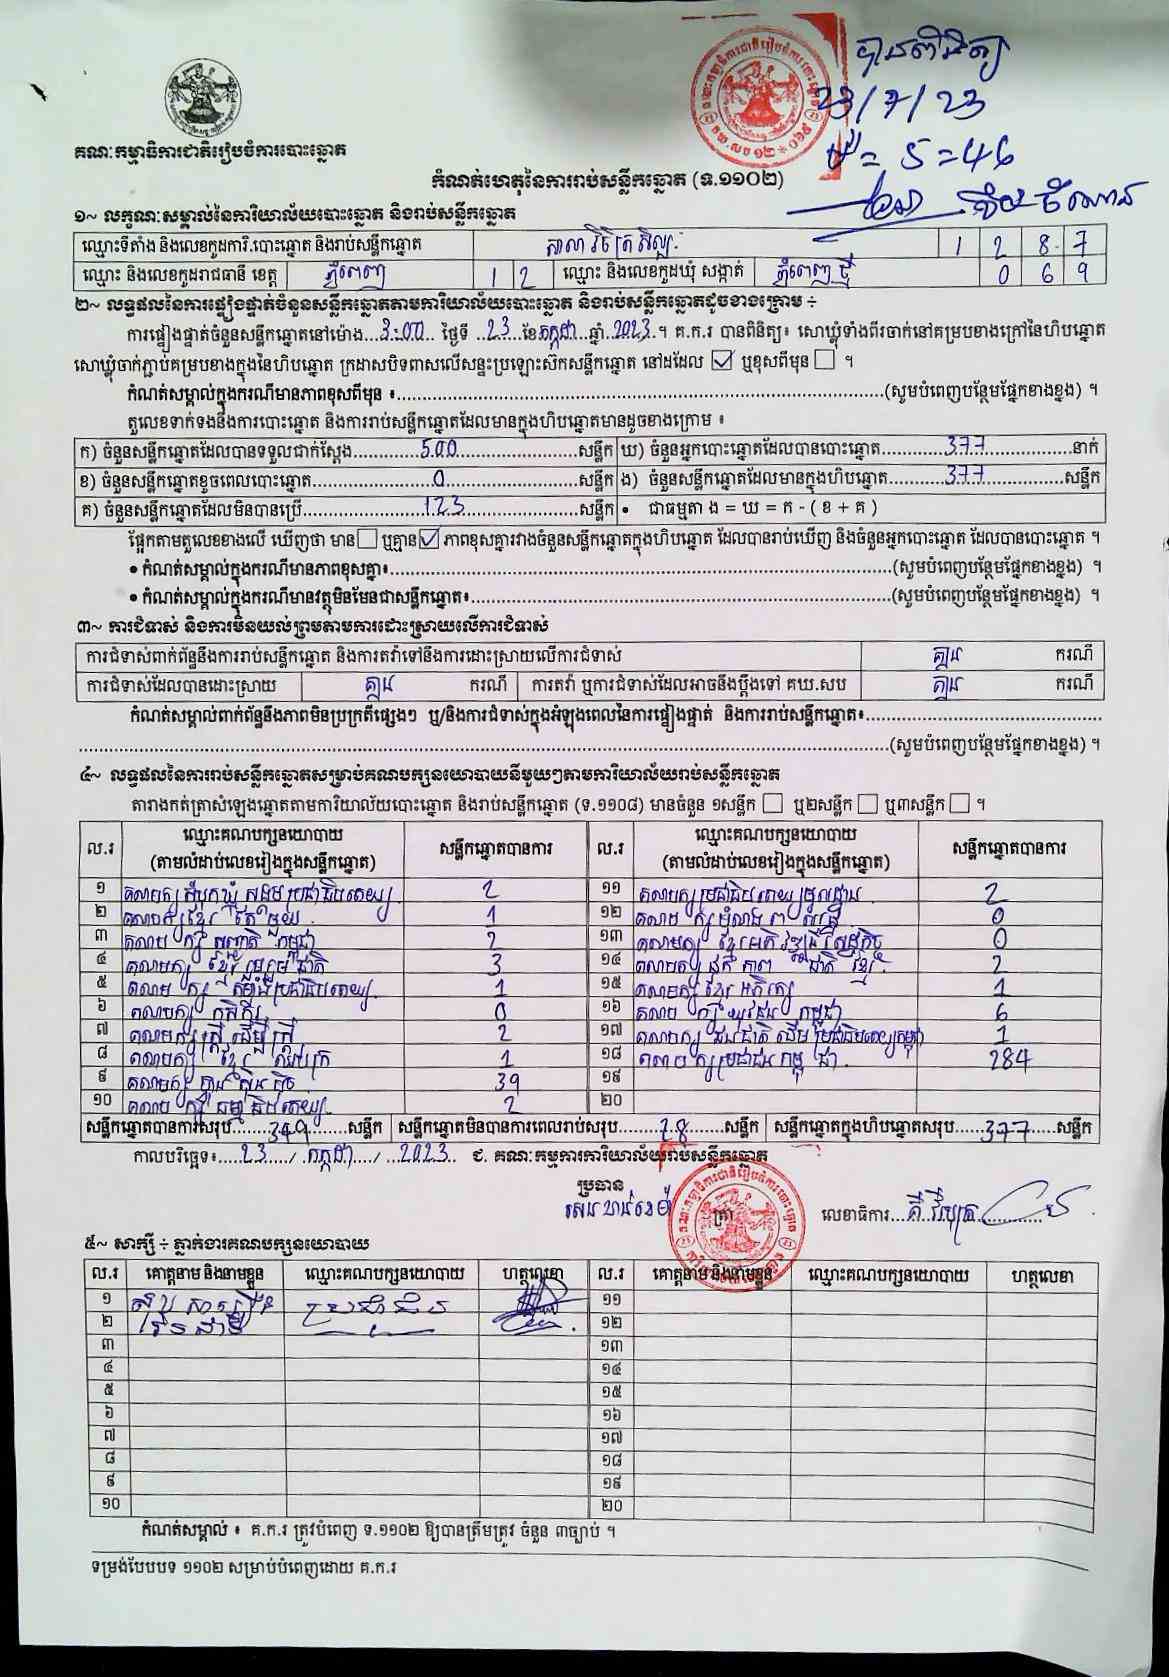 បានពិនិត្យ
23/7/23
ម៉ = 5 = 46
គណៈកម្មាធិការជាតិរៀបចំការបោះឆ្នោត
កំណត់ហេតុនៃការរាប់សន្លឹកឆ្នោត (ទ.១១០២)
១~ លក្ខណៈសម្គាល់នៃការិយាល័យបោះឆ្នោត និងរាប់សន្លឹកឆ្នោត
ឈ្មោះទីតាំង និងលេខកូដការិ.បោះឆ្នោត និងរាប់សន្លឹកឆ្នោត សាលា វិចិត្រសិល្បៈ 1 2 8 7
ឈ្មោះ និងលេខកូដរាជធានី ខេត្ត ភ្នំពេញ 1 2 ឈ្មោះ និងលេខកូដឃុំ សង្កាត់ ភ្នំពេញថ្មី 0 6 9
២~ លទ្ធផលនៃការផ្ទៀងផ្ទាត់ចំនួនសន្លឹកឆ្នោតតាមការិយាល័យបោះឆ្នោត និងរាប់សន្លឹកឆ្នោតដូចខាងក្រោម ÷
ការផ្ទៀងផ្ទាត់ចំនួនសន្លឹកឆ្នោតនៅម៉ោង...3:00... ថ្ងៃទី ...23...ខែកក្កដា...ឆ្នាំ.2023.។ គ.ក.រ បានពិនិត្យ៖ សោឃ្លុំទាំងពីរចាក់នៅគម្របខាងក្រៅនៃហិបឆ្នោត
សោឃ្លុំចាក់ភ្ជាប់គម្របខាងក្នុងនៃហិបឆ្នោត ក្រដាសបិទពាសលើសន្ទះប្រឡោះស៊កសន្លឹកឆ្នោត នៅដដែល ☑ ឬខុសពីមុន ☐ ។
កំណត់សម្គាល់ក្នុងករណីមានភាពខុសពីមុន ៖...(សូមបំពេញបន្ថែមផ្នែកខាងខ្នង) ។
តួលេខទាក់ទងនឹងការបោះឆ្នោត និងការរាប់សន្លឹកឆ្នោតដែលមានក្នុងហិបឆ្នោតមានដូចខាងក្រោម ៖
ក) ចំនួនសន្លឹកឆ្នោតដែលបានទទួលជាក់ស្តែង...500...សន្លឹក ឃ) ចំនួនអ្នកបោះឆ្នោតដែលបានបោះឆ្នោត...377...នាក់
ខ) ចំនួនសន្លឹកឆ្នោតខូចពេលបោះឆ្នោត...0...សន្លឹក ង) ចំនួនសន្លឹកឆ្នោតដែលមានក្នុងហិបឆ្នោត...377...សន្លឹក
គ) ចំនួនសន្លឹកឆ្នោតដែលមិនបានប្រើ...123...សន្លឹក • ជាធម្មតា ង = ឃ = ក - ( ខ + គ )
ផ្អែកតាមតួលេខខាងលើ ឃើញថា មាន ☐ ឬគ្មាន ☑ ភាពខុសគ្នារវាងចំនួនសន្លឹកឆ្នោតក្នុងហិបឆ្នោត ដែលបានរាប់ឃើញ និងចំនួនអ្នកបោះឆ្នោត ដែលបានបោះឆ្នោត ។
• កំណត់សម្គាល់ក្នុងករណីមានភាពខុសគ្នា៖...(សូមបំពេញបន្ថែមផ្នែកខាងខ្នង) ។
• កំណត់សម្គាល់ក្នុងករណីមានវត្ថុមិនមែនជាសន្លឹកឆ្នោត៖...(សូមបំពេញបន្ថែមផ្នែកខាងខ្នង) ។
៣~ ការជំទាស់ និងការមិនយល់ព្រមតាមការដោះស្រាយលើការជំទាស់
ការជំទាស់ពាក់ព័ន្ធនឹងការរាប់សន្លឹកឆ្នោត និងការតវ៉ាទៅនឹងការដោះស្រាយលើការជំទាស់ គ្មាន ករណី
ការជំទាស់ដែលបានដោះស្រាយ គ្មាន ករណី ការតវ៉ា ឬការជំទាស់ដែលអាចនឹងប្តឹងទៅ គឃ.សប គ្មាន ករណី
កំណត់សម្គាល់ពាក់ព័ន្ធនឹងភាពមិនប្រក្រតីផ្សេងៗ ឬ/និងការជំទាស់ក្នុងអំឡុងពេលនៃការផ្ទៀងផ្ទាត់ និងការរាប់សន្លឹកឆ្នោត៖...
...(សូមបំពេញបន្ថែមផ្នែកខាងខ្នង) ។
៤~ លទ្ធផលនៃការរាប់សន្លឹកឆ្នោតសម្រាប់គណបក្សនយោបាយនីមួយៗតាមការិយាល័យរាប់សន្លឹកឆ្នោត
តារាងកត់ត្រាសំឡេងឆ្នោតតាមការិយាល័យបោះឆ្នោត និងរាប់សន្លឹកឆ្នោត (ទ.១១០៨) មានចំនួន ១សន្លឹក ☐ ឬ២សន្លឹក ☐ ឬ៣សន្លឹក ☐ ។
ល.រ ឈ្មោះគណបក្សនយោបាយ (តាមលំដាប់លេខរៀងក្នុងសន្លឹកឆ្នោត) សន្លឹកឆ្នោតបានការ ល.រ ឈ្មោះគណបក្សនយោបាយ (តាមលំដាប់លេខរៀងក្នុងសន្លឹកឆ្នោត) សន្លឹកឆ្នោតបានការ
១ គណបក្សសំបុកឃ្មុំសង្គមប្រជាធិបតេយ្យ 2 ១១ គណបក្សប្រជាធិបតេយ្យមូលដ្ឋាន 2
២ គណបក្សខ្មែរតែមួយ 1 ១២ គណបក្ស 0
៣ គណបក្សសញ្ជាតិកម្ពុជា 2 ១៣ គណបក្សខ្មែរអភិវឌ្ឍន៍សេដ្ឋកិច្ច 0
៤ គណបក្សខ្មែររួបរួមជាតិ 3 ១៤ គណបក្សឯកភាពជាតិខ្មែរ 2
៥ គណបក្ស ប្រជាធិបតេយ្យ 1 ១៥ គណបក្សខ្មែរអភិរក្ស 1
៦ គណបក្សកសិករ 0 ១៦ គណបក្សយុវជនកម្ពុជា 6
៧ គណបក្សស្ត្រីដើម្បីស្ត្រី 2 ១៧ គណបក្សជនជាតិដើមប្រជាធិបតេយ្យកម្ពុជា 1
៨ គណបក្សខ្មែរ 1 ១៨ គណបក្សប្រជាជនកម្ពុជា 284
៩ គណបក្សហ្វ៊ុនស៊ិនប៉ិច 39 ១៩
១០ គណបក្សធម្មាធិបតេយ្យ 2 ២០
សន្លឹកឆ្នោតបានការសរុប...349...សន្លឹក សន្លឹកឆ្នោតមិនបានការពេលរាប់សរុប...28...សន្លឹក សន្លឹកឆ្នោតក្នុងហិបឆ្នោតសរុប...377...សន្លឹក
កាលបរិច្ឆេទ៖...23.../ កក្កដា.../ ..2023.. ជ. គណៈកម្មការការិយាល័យរាប់សន្លឹកឆ្នោត
ប្រធាន
ត្រា
លេខាធិការ...
៥~ សាក្សី ÷ ភ្នាក់ងារគណបក្សនយោបាយ
ល.រ គោត្តនាម និងនាមខ្លួន ឈ្មោះគណបក្សនយោបាយ ហត្ថលេខា ល.រ គោត្តនាម និងនាមខ្លួន ឈ្មោះគណបក្សនយោបាយ ហត្ថលេខា
១ ប្រជាជន ១១
២ ១២
៣ ១៣
៤ ១៤
៥ ១៥
៦ ១៦
៧ ១៧
៨ ១៨
៩ ១៩
១០ ២០
កំណត់សម្គាល់ ៖ គ.ក.រ ត្រូវបំពេញ ទ.១១០២ ឱ្យបានត្រឹមត្រូវ ចំនួន ៣ច្បាប់ ។
ទម្រង់បែបបទ ១១០២ សម្រាប់បំពេញដោយ គ.ក.រ